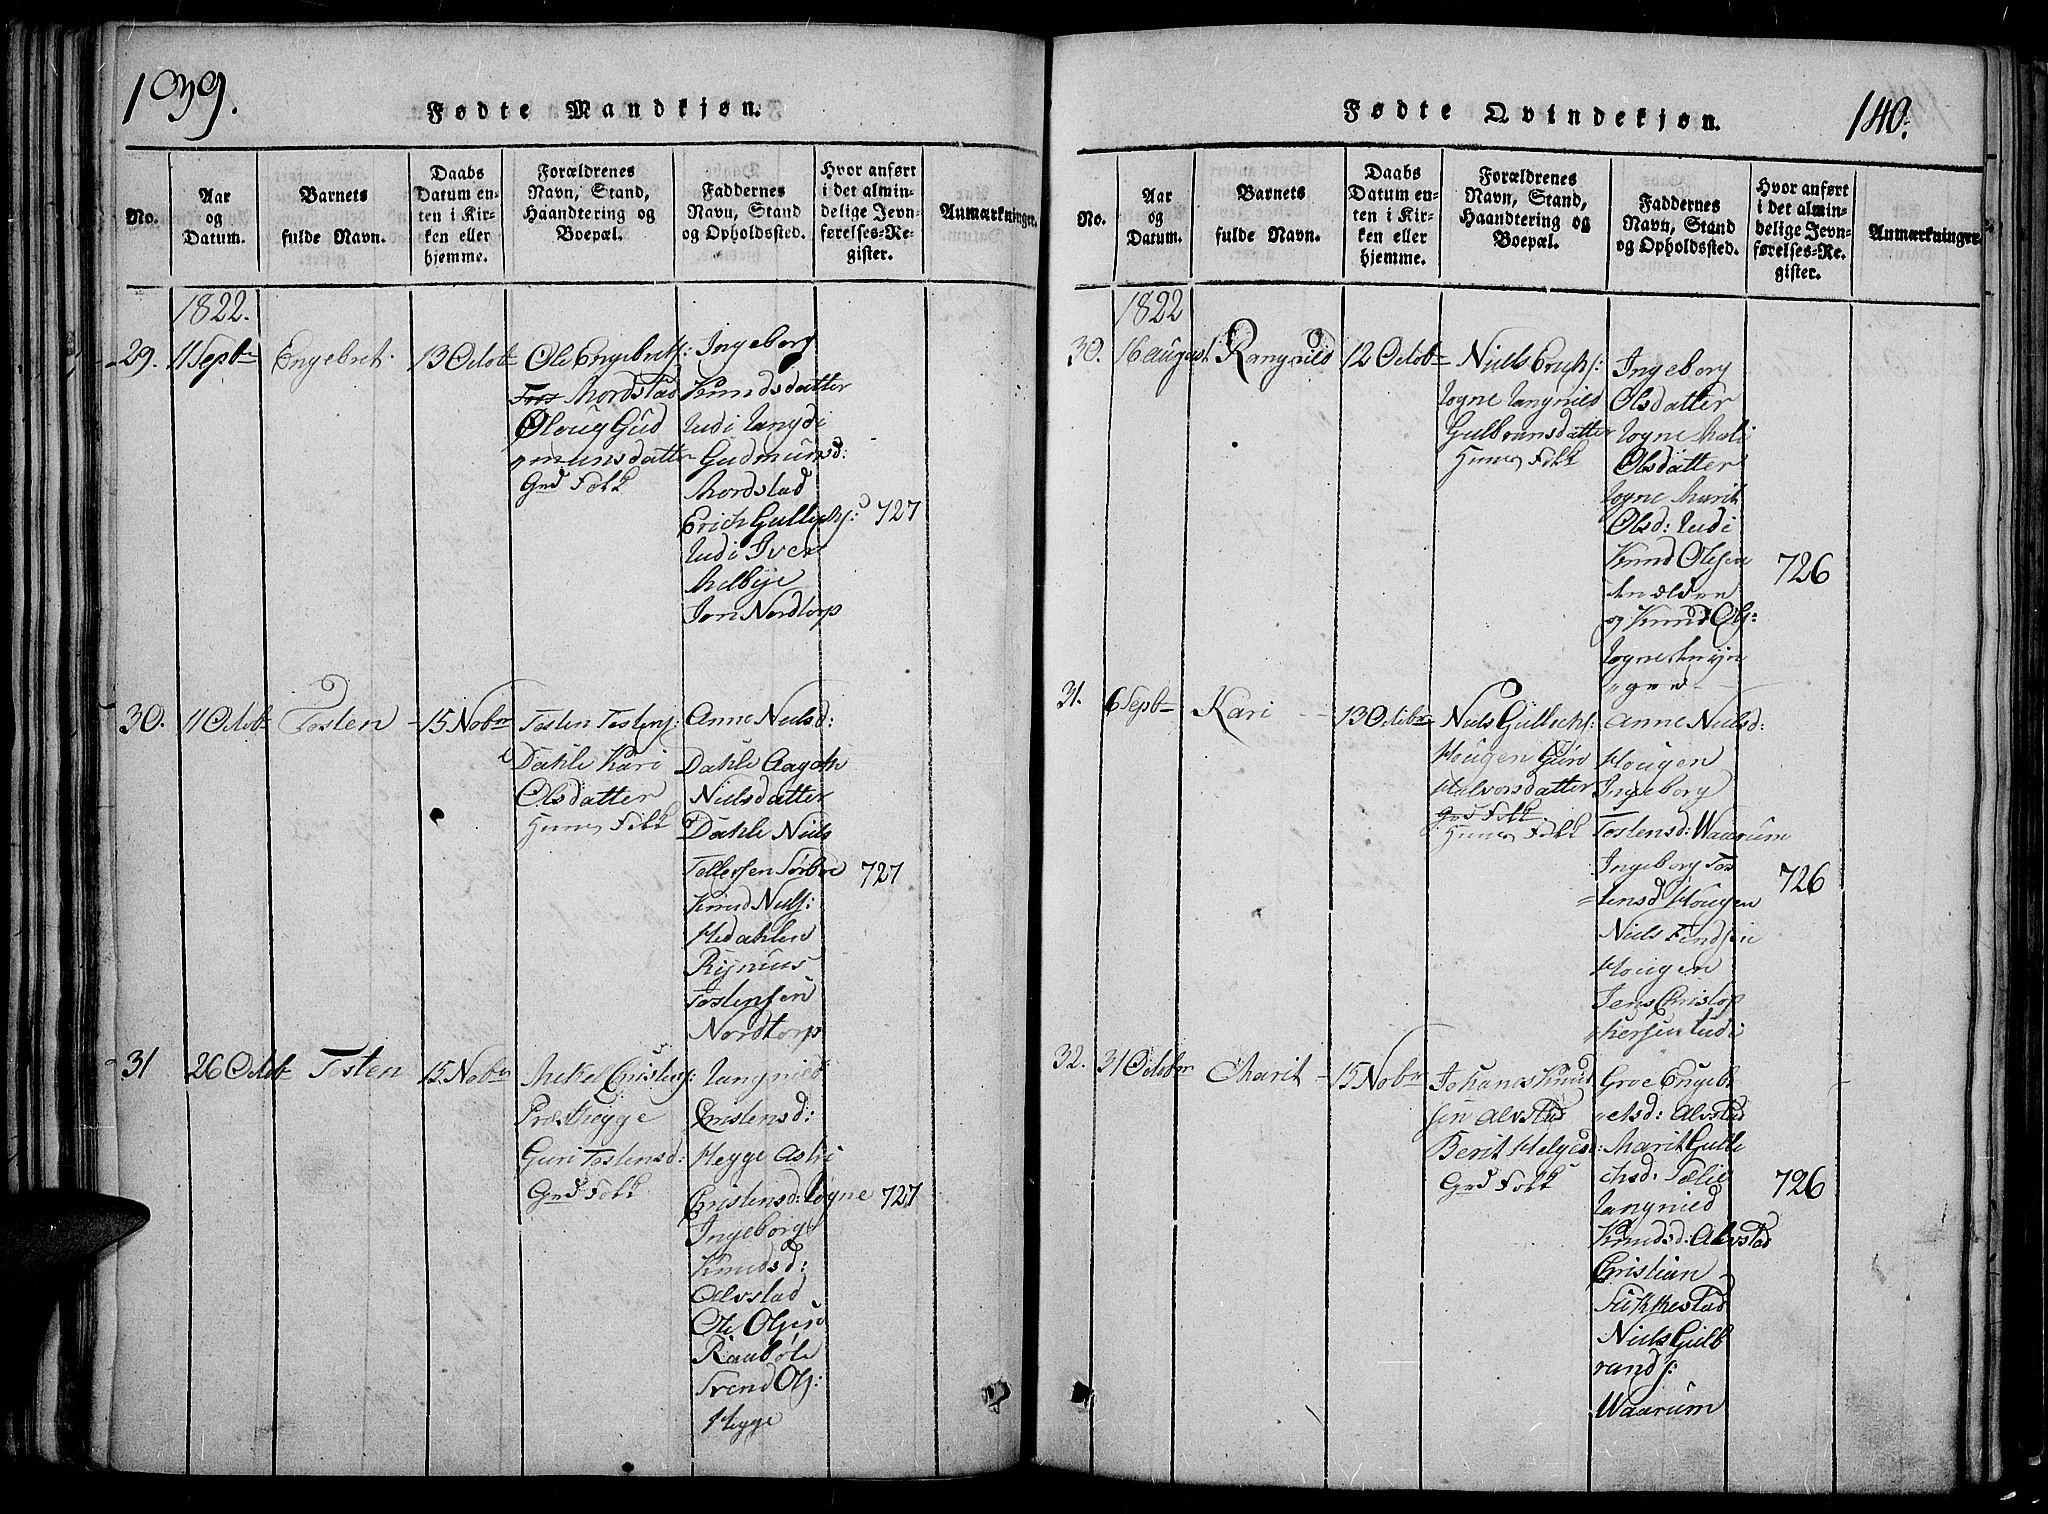 139.
Fødte Mandkjøn.
No.
Aar
og
Datum.
Barnets
fulde Navn.
Daabs
Datum en-
ten i Kir-
ken eller
hjemme.
Forældrenes
Navn, Stand,
Haandtering og
Boepæl.
Faddernes
Navn, Stand
og Opholdssted.
Hvor anført
i det almin-
delige Jevn-
førelses-Re-
gister.
Anmærkninger.
1822.
29.
11 Septbr
Engebret.
13 Octobr
Ole Engebrets:
Nordstad
Oloug Gud
munsdatter
Grd Folk
Ingeborg
Knudsdatter
Ludi Rangdi
Gudmunsd:
Nordstad
Erich Gullichs:
Ludi Iver
Melbye
Jon Nordtorp
727
30.
11 Octobr
Tosten
15 Nobr
Tosten Tostens:
Dahle Kari
Olsdatter
Huus Folk
Anne Nielsd:
Dahle Aagoth
Nielsdatter
Dahle Niels
Tollefsen Sørbøe
Knud Niels:
Hedahlen
Tostensen
Nordtorp
727
31
26 Octobr
Tosten
15 Nobr
Mikel Cristens:
Præsthegge
Guri Tostensd:
Grd Folk
Rangnied
Cristensd:
Hegge Astri
Cristensd: Rogne
Ingeborg
Knudsd:
Alvstad
Ole Olsen
Raubøle
Trend Ols:
Hegge
727
140.
Fødte Qvindekjøn.
No.
Aar
og
Datum.
Barnets
fulde Navn.
Daabs
Datum en-
ten i Kir-
ken eller
hjemme.
Forældrenes
Navn, Stand,
Haandtering og
Boepæl.
Faddernes
Navn, Stand
og Opholdssted.
Hvor anført
i det almin-
delige Jevn-
førelses-Re-
gister.
Anmærkninger.
1822
30.
16 august
Rangnied
12 Octobr
Niels Erichs:
Rogne Rangnied
Gulbransdatter
Huus Folk
Ingeborg
Olsdatter
Rogne Mali
Olsdatter
Rogne Marit
Olsd: Ludi
Knud Olsen
og Knud Ols:
Rogne
726
31.
6 Septbr
Kari
13 Octobr
Niels Gullichs:
Hougen Guro
Halvorsdatter
Grd Folk
Huus Folk
Anne Nielsd:
Hougen
Ingeborg
Tostensd: Waarum
Ingeborg Tos
tensd Hougen
Niels
Hougen
Jens Cristop
hersen Ludi
726
32.
31 Octobr
Marit
15 Nobr
Johanes Knud
sen Alvstad
Berit Helgesd:
Grd Folk
Groe Engeb
retsd: Alvstad
Marit Gulli
chsd:
Rangnied
Knudsd: Alvstad
Cristian
Fukkestad
Niels Gulb
rands:
Waarum
726